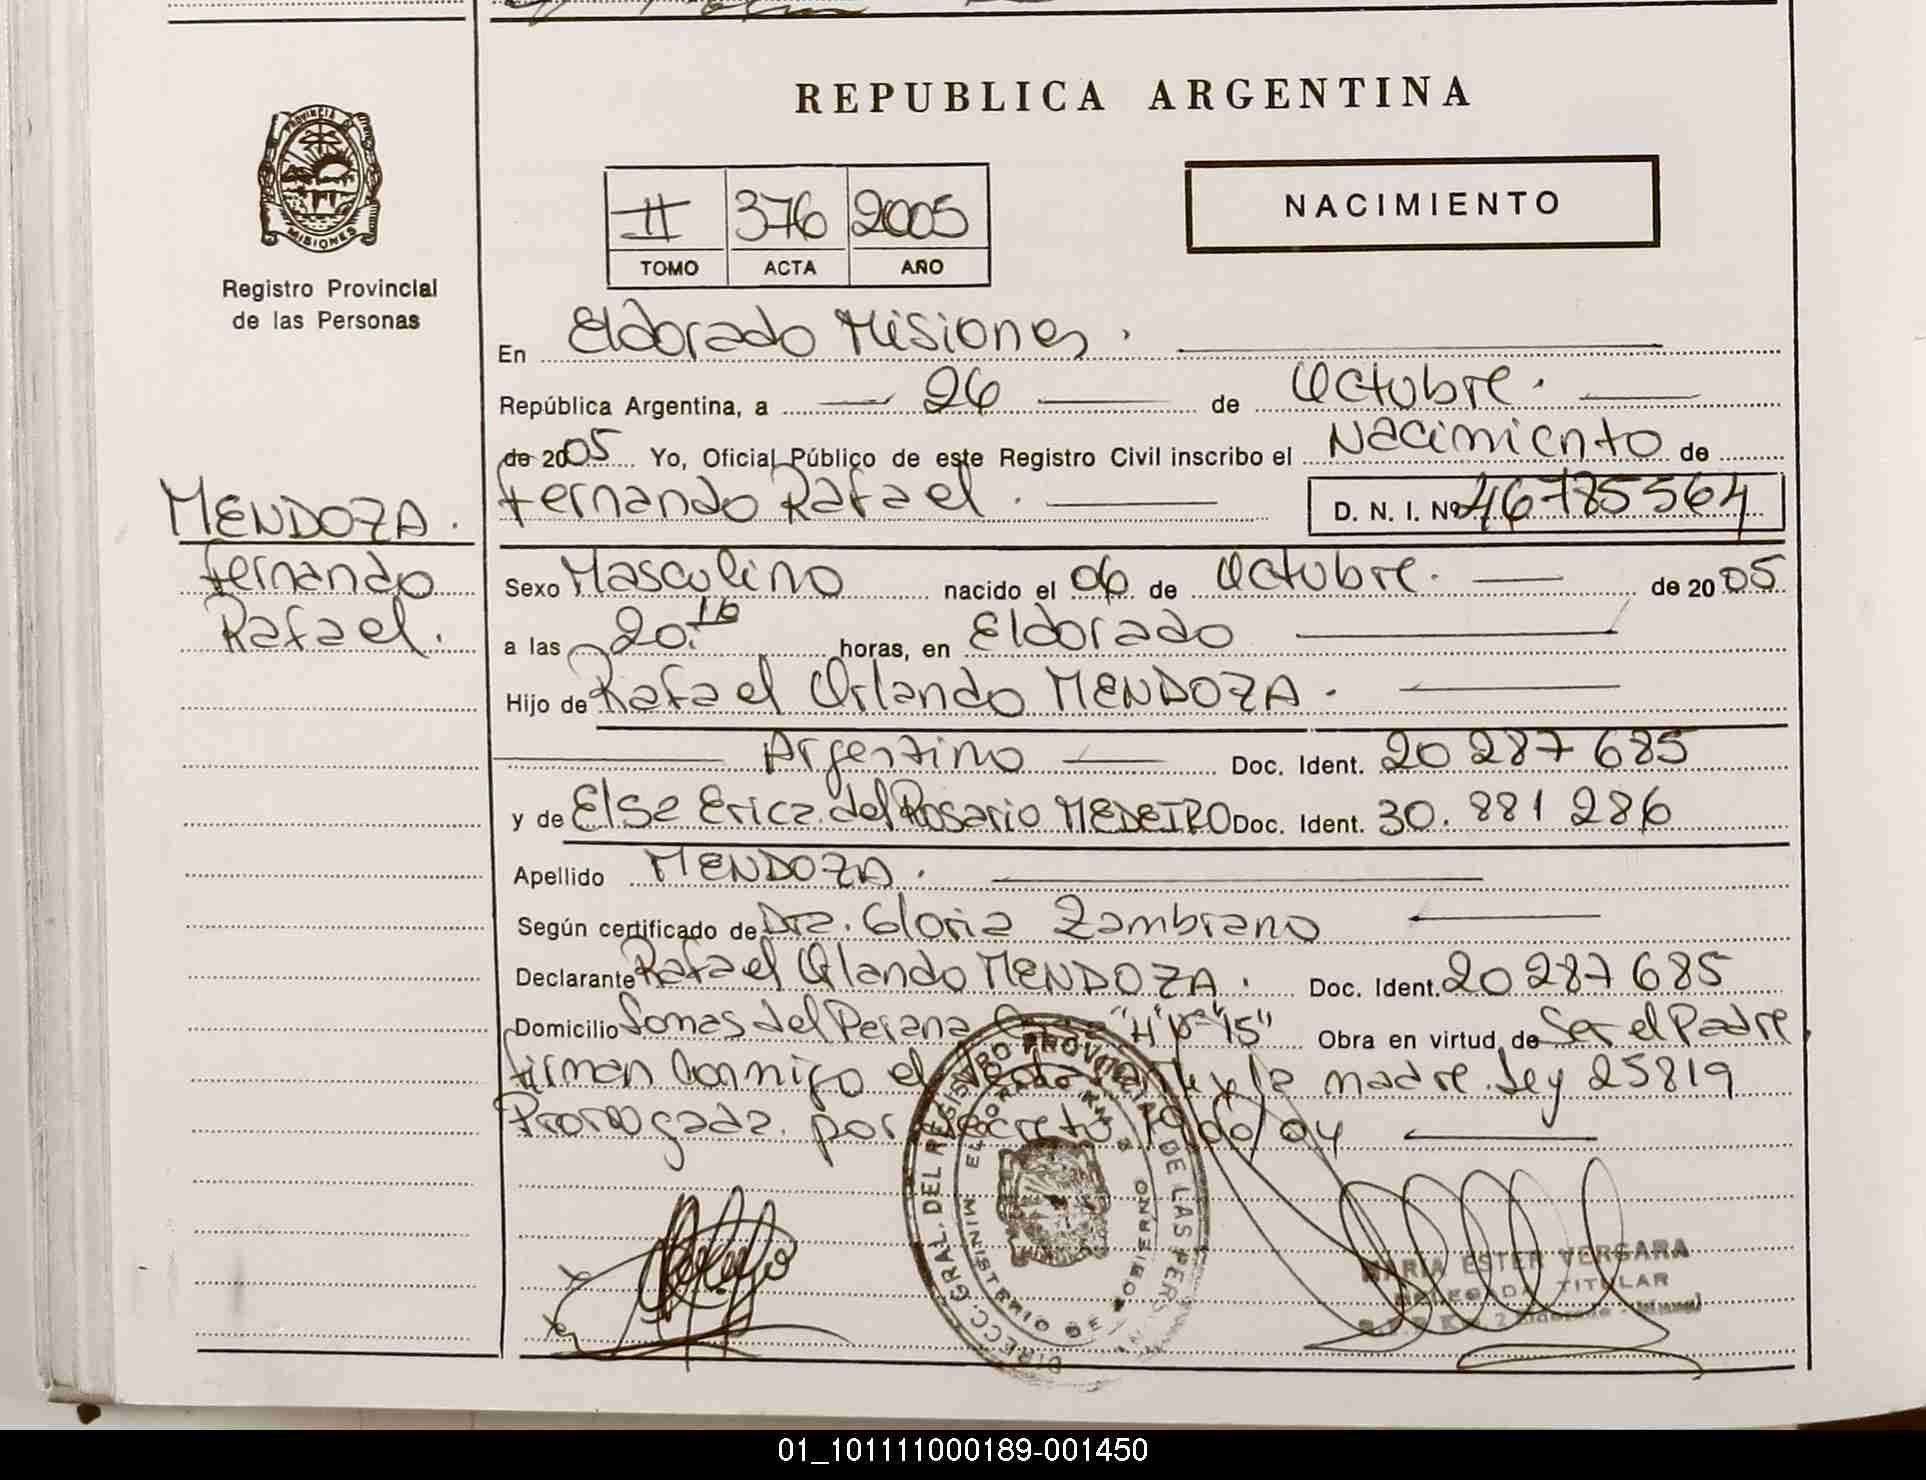 PROVINCIA DE
MISIONES
Registro Provincial
de las Personas
REPUBLICA ARGENTINA
II 376 2005
TOMO ACTA AÑO
NACIMIENTO
En Eldorado Misiones.
República Argentina, a 26 de Octubre.
de 2005 Yo, Oficial Público de este Registro Civil inscribo el Nacimiento de
MENDOZA. Fernando Rafael. D. N. I. Nº 46785564
Fernando Sexo Masculino nacido el 06 de Octubre. de 2005
Rafael. a las 20:10 horas, en Eldorado
Hijo de Rafael Orlando MENDOZA.
Argentino Doc. Ident. 20 287 685
y de Else Erica del Rosario MEDEIRO Doc. Ident. 30. 881 286
Apellido MENDOZA.
Según certificado de Dra. Gloria Zambrano
Declarante Rafael Orlando MENDOZA. Doc. Ident. 20 287 685
Domicilio Lomas del Parana "H" Nº "15" Obra en virtud de Ser el Padre,
firman conmigo el declarante y la madre. Ley 25819
Prorrogada por decreto /04
DIRECC. GRAL. DEL REGISTRO PROVINCIAL DE LAS PERS
MINISTERIO DE GOBIERNO
MARIA ESTER VERGARA
DELEGADA TITULAR
01_101111000189-001450